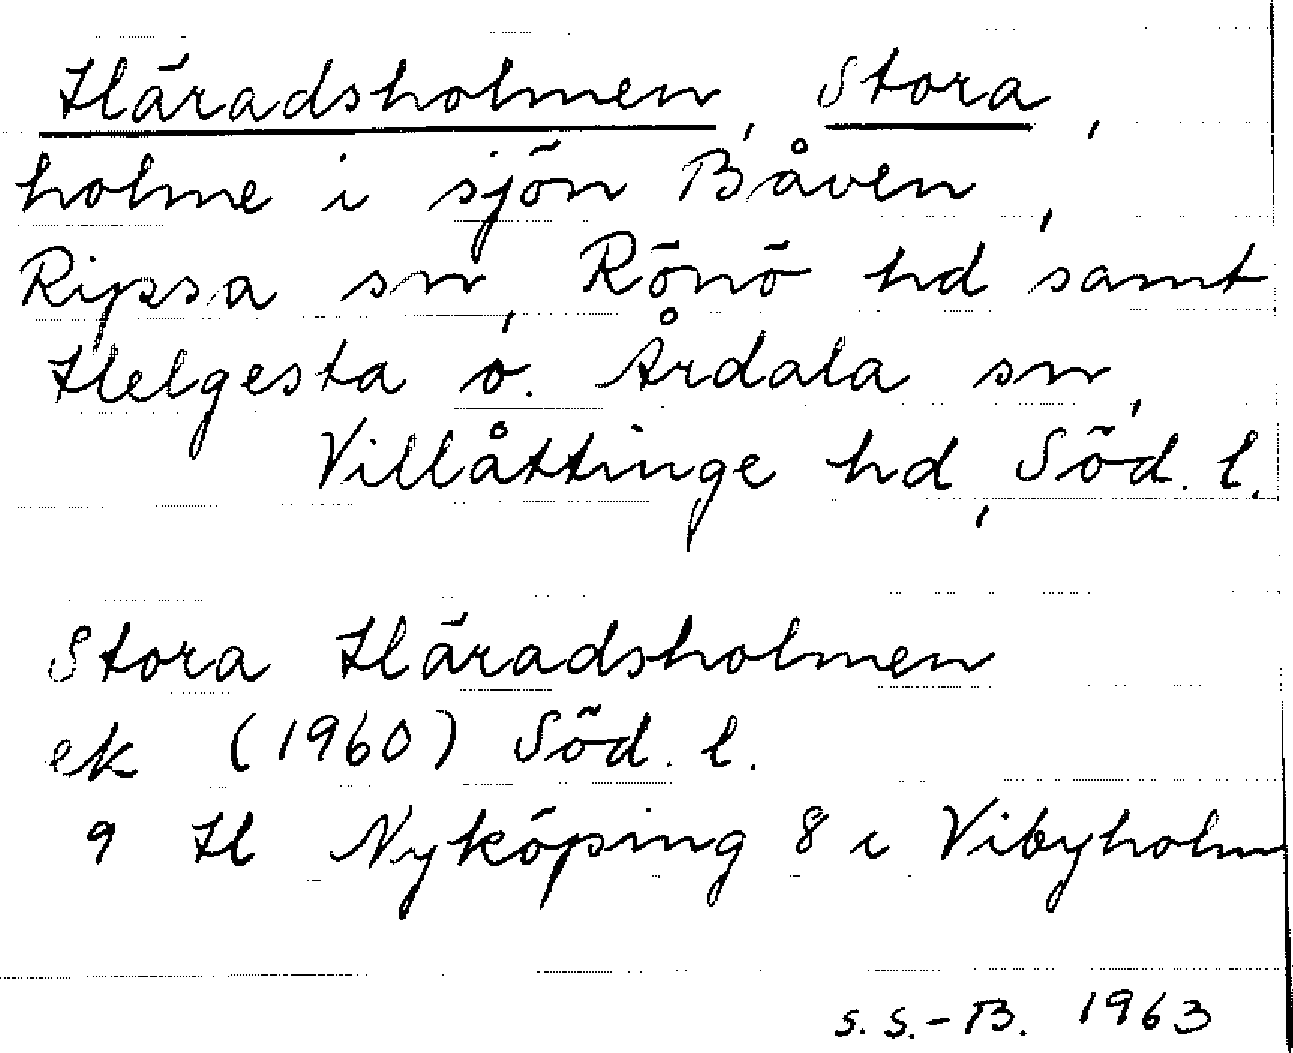 Häradsholmen, Stora,
holme i sjön Båven,
Ripsa sn, Rönö hd samt
Helgesta o. Årdala sn,
Villåttinge hd, Söd. l.
Stora Häradsholmen
ek (1960) Söd. l.
9 H Nyköping 8 i Vibyholm
S. S.-B. 1963